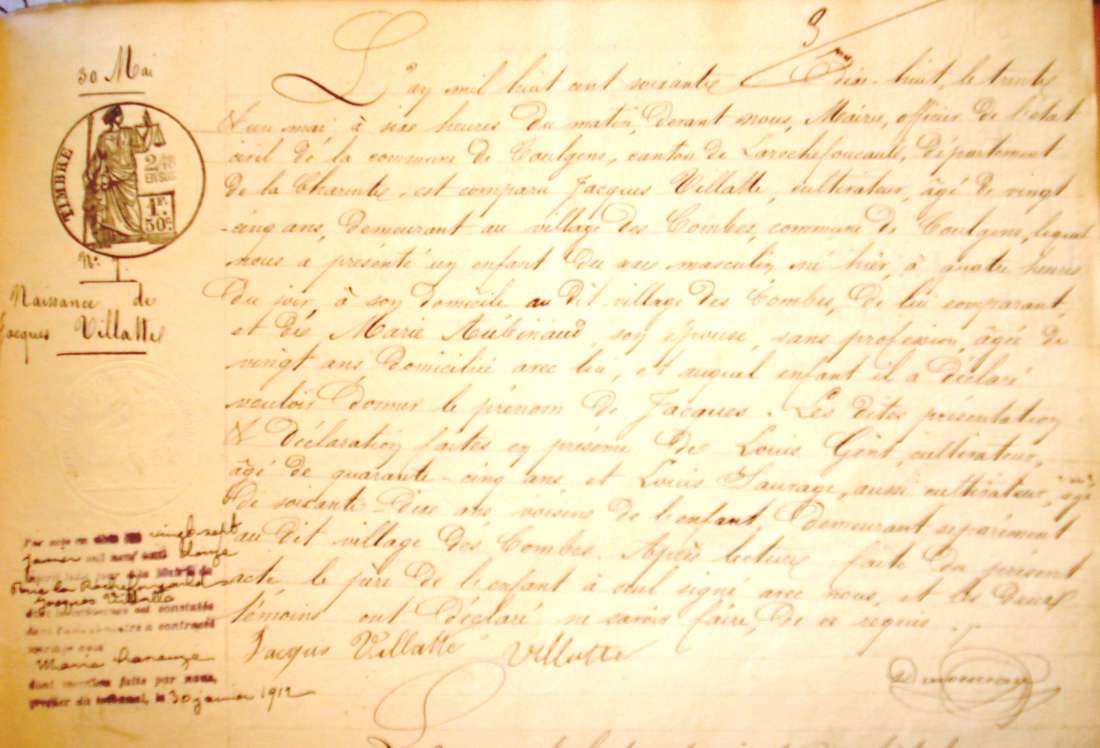 30 Mai
TIMBRE
2/10
EN SUS
1F.
50c.
N.
Naissance de
Jacques Villatte
9
L'an mil huit cent soixante Dix-huit, le trente
& un mai, à six heures du matin, devant nous, Maire, officier de l'état
civil de la commune de Coulgens, canton de Larochefoucauld, département
de la Charente, est comparu Jacques Villatte, cultivateur, âgé de vingt
-cinq ans, demeurant au village des Combes, commune de Coulgens, lequel
nous a présenté un enfant du sexe masculin né hier, à quatre heures
du soir, à son domicile au dit village des Combes, de lui comparant,
et de Marie Aubinaud, son épouse, sans profession, âgée de
vingt ans domiciliée avec lui, et auquel enfant il a déclaré
vouloir donner le prénom de Jacques. Les dites présentation
& déclaration faites en présence de Louis cultivateur,
âgé de quarante-cinq ans et Louis Sauvage, aussi cultivateur, âgé
de soixante-dix ans voisins de l'enfant, demeurant séparément
au dit village des Combes. Après lecture faite du présent
acte le père de l'enfant a seul signé avec nous, et les deux
témoins ont déclaré ne savoir faire, de ce requis.
Jacques Villatte Villatte
Par acte en date du vingt sept
janvier mil neuf cent douze
Jacques Villatte
a contracté
mariage avec
Maria
dont mention faite par nous,
greffier du tribunal, le 30 janvier 1912